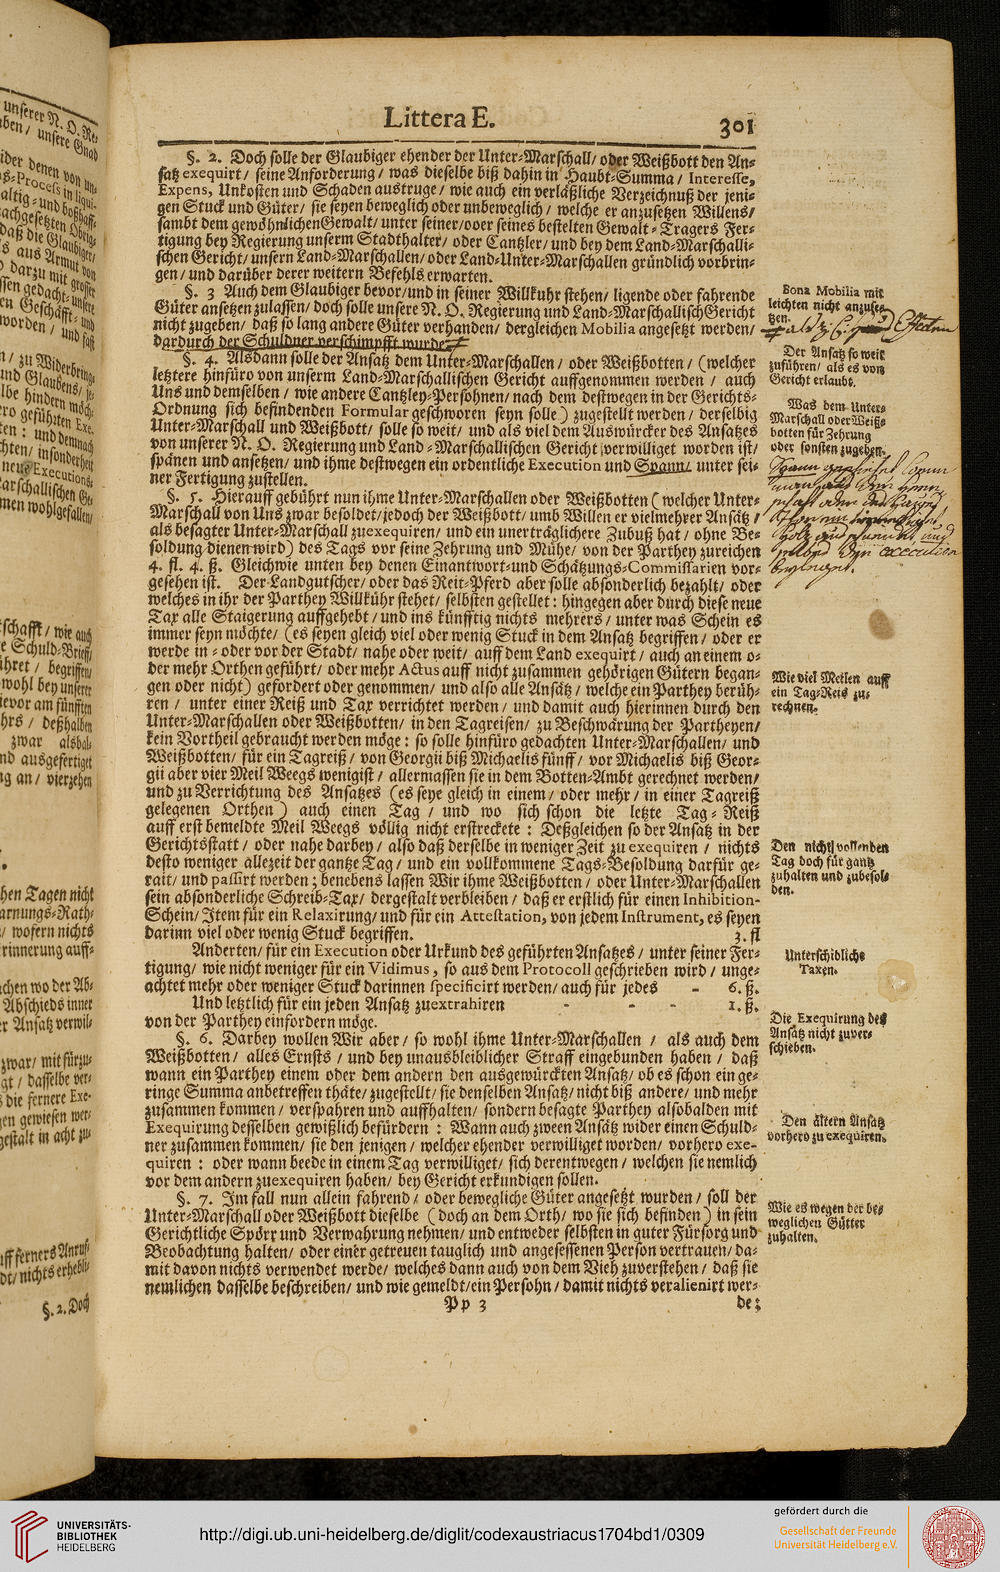 Littera E.
301
§. 2. Doch solle der Glaubiger ehender der Unter-Marschall/ oder Weißbott den An-
satz exequirt / seine Anforderung / was dieselbe biß dahin in Haubt-Summa / Interesse,
Expens, Unkosten und Schaden austruge / wie auch ein verläßliche Verzeichnuß der jeni-
gen Stuck und Güter / sie seyen beweglich oder unbeweglich / welche er anzusetzen Willens/
sambt dem gewöhnlichen Gewalt/ unter seiner/ oder seines bestelten Gewalt-Tragers Fer-
tigung bey Regierung unserm Stadthalter/ oder Cantzler/ und bey dem Land-Marschalli-
schen Gericht/ unsern Land-Marschallen/ oder Land-Unter-Marschallen gründlich vorbrin-
gen / und darüber derer weitern Befehls erwarten.
§. 3 Auch dem Glaubiger bevor/und in seiner Willkuhr stehen/ ligende oder fahrende
Güter ansetzen zulassen/ doch solle unsere N. O. Regierung und Land-Marschallisch Gericht
nicht zugeben/ daß so lang andere Güter verhanden/ dergleichen Mobilia angesetzt werden/
dardurch der Schuldner verschimpfft wurde.
§. 4. Alsdann solle der Ansatz dem Unter-Marschallen / oder Weißbotten / (welcher
letztere hinfüro von unserm Land-Marschallischen Gericht auffgenommen werden / auch
Uns und demselben / wie andere Cantzley-Persohnen/ nach dem destwegen in der Gerichts-
Ordnung sich befindenden Formular geschworen seyn solle) zugestellt werden / derselbig
Unter-Marschall und Weißbott/ solle so weit/ und als viel dem Auswürcker des Ansatzes
von unserer N. O. Regierung und Land-Marschallischen Gericht verwilliget worden ist/
spänen und ansetzen/ und ihme destwegen ein ordentliche Execution und Spann/ unter sei-
ner Fertigung zustellen.
§. 5. Hierauff gebührt nun ihme Unter-Marschallen oder Weißbotten ( welcher Unter-
Marschall von Uns zwar besoldet/ jedoch der Weißbott/ umb Willen er vielmehrer Ansätz /
als besagter Unter-Marschall zuexequiren/ und ein unerträglichere Zubuß hat / ohne Be-
soldung dienen wird) des Tags vor seine Zehrung und Mühe/ von der Parthey zureichen
4. fl. 4. ß. Gleichwie unten bey denen Einantwort-und Schätzungs-Commissarien vor-
gesehen ist. Der Landgutscher/ oder das Reit-Pferd aber solle absonderlich bezahlt/ oder
welches in ihr der Parthey Willkühr stehet/ selbsten gestellet: hingegen aber durch diese neue
Tax alle Staigerung auffgehebt/ und ins künfftig nichts mehrers / unter was Schein es
immer seyn möchte/ (es seyen gleich viel oder wenig Stuck in dem Ansatz begriffen / oder er
werde in- oder vor der Stadt/ nahe oder weit/ auff dem Land exequirt / auch an einem o-
der mehr Orthen geführt/ oder mehr Actus auff nicht zusammen gehörigen Gütern began-
gen oder nicht) gefordert oder genommen/ und also alle Ansätz / welche ein Parthey berüh-
ren / unter einer Reiß und Tax verrichtet werden / und damit auch hierinnen durch den
Unter-Marschallen oder Weißbotten/ in den Tagreisen/ zu Beschwärung der Partheyen/
kein Vortheil gebraucht werden möge: so solle hinfüro gedachten Unter-Marschallen/ und
Weißbotten/ für ein Tagreiß/ von Georgii biß Michaelis fünff/ vor Michaelis biß Geor-
gii aber vier Meil Weegs wenigist / allermassen sie in dem Botten-Ambt gerechnet werden/
und zu Verrichtung des Ansatzes (es seye gleich in einem/ oder mehr / in einer Tagreiß
gelegenen Orthen) auch einen Tag / und wo sich schon die letzte Tag-Reiß
auff erst bemeldte Meil Weegs völlig nicht erstreckete : Deßgleichen so der Ansatz in der
Gerichtsstatt / oder nahe darbey / also daß derselbe in weniger Zeit zu exequiren / nichts
desto weniger allezeit der gantze Tag / und ein vollkommene Tags-Besoldung darfür ge-
rait/ und passirt werden; benebens lassen Wir ihme Weißbotten / oder Unter-Marschallen
sein absonderliche Schreib-Tax/ dergestalt verbleiben / daß er erstlich für einen Inhibition-
Schein/ Item für ein Relaxirung/ und für ein Attestation, von jedem Instrument, es seyen
darinn viel oder wenig Stuck begriffen. 3. fl
Anderten/ für ein Execution oder Urkund des geführten Ansatzes / unter seiner Fer-
tigung/ wie nicht weniger für ein Vidimus, so aus dem Protocoll geschrieben wird / unge-
achtet mehr oder weniger Stuck darinnen specificirt werden/ auch für jedes - 6. ß.
Und letztlich für ein jeden Ansatz zuextrahiren - - - 1. ß.
von der Parthey einfordern möge.
§. 6. Darbey wollen Wir aber / so wohl ihme Unter-Marschallen / als auch dem
Weißbotten / alles Ernsts / und bey unausbleiblicher Straff eingebunden haben / daß
wann ein Parthey einem oder dem andern den ausgewürckten Ansatz/ ob es schon ein ge-
ringe Summa anbetreffen thäte/ zugestellt/ sie denselben Ansatz/ nicht biß andere/ und mehr
zusammen kommen / verspahren und auffhalten/ sondern besagte Parthey alsobalden mit
Exequirung desselben gewißlich befürdern : Wann auch zween Ansätz wider einen Schuld-
ner zusammen kommen/ sie den jenigen / welcher ehender verwilliget worden/ vorhero exe-
quiren : oder wann beede in einem Tag verwilliget/ sich derentwegen / welchen sie nemlich
vor dem andern zuexequiren haben/ bey Gericht erkundigen sollen.
§. 7. Im fall nun allein fahrend / oder bewegliche Güter angesetzt wurden / soll der
Unter-Marschall oder Weißbott dieselbe (doch an dem Orth/ wo sie sich befinden) in sein
Gerichtliche Spörr und Verwahrung nehmen/ und entweder selbsten in guter Fürsorg und
Beobachtung halten/ oder einer getreuen tauglich und angesessenen Person vertrauen/ da-
mit davon nichts verwendet werde/ welches dann auch von dem Vieh zuverstehen / daß sie
nemlichen dasselbe beschreiben/ und wie gemeldt/ ein Persohn / damit nichts veralienirt wer-
Pp 3
de;
Bona Mobilia mit
leichten nicht anzuse-
tzen.
Effecten
Der Ansatz so weit
zuführen/ als es von
Gericht erlaubt.
Was dem Unter-
Marschall oder Weiß-
botten für Zehrung
oder sonsten zugeben.
execution
Wie viel Meilen auff
ein Tag-Reis zu-
rechnen.
Den nicht vollenden
Tag doch für gantz
zuhalten und zubesol-
den.
Unterschidliche
Taxen.
Die Exequirung des
Ansatz nicht zuver-
schieben.
Den ältern Ansatz
vorhero zu exequiren.
Wie es wegen der be-
weglichen Gütter
zuhalten.
§. 2. Doch
UNIVERSITÄTS-
BIBLIOTHEK
HEIDELBERG
http://digi.ub.uni-heidelberg.de/diglit/codexaustriacus1704bd1/0309
gefördert durch die
Gesellschaft der Freunde
Universität Heidelberg e.V.